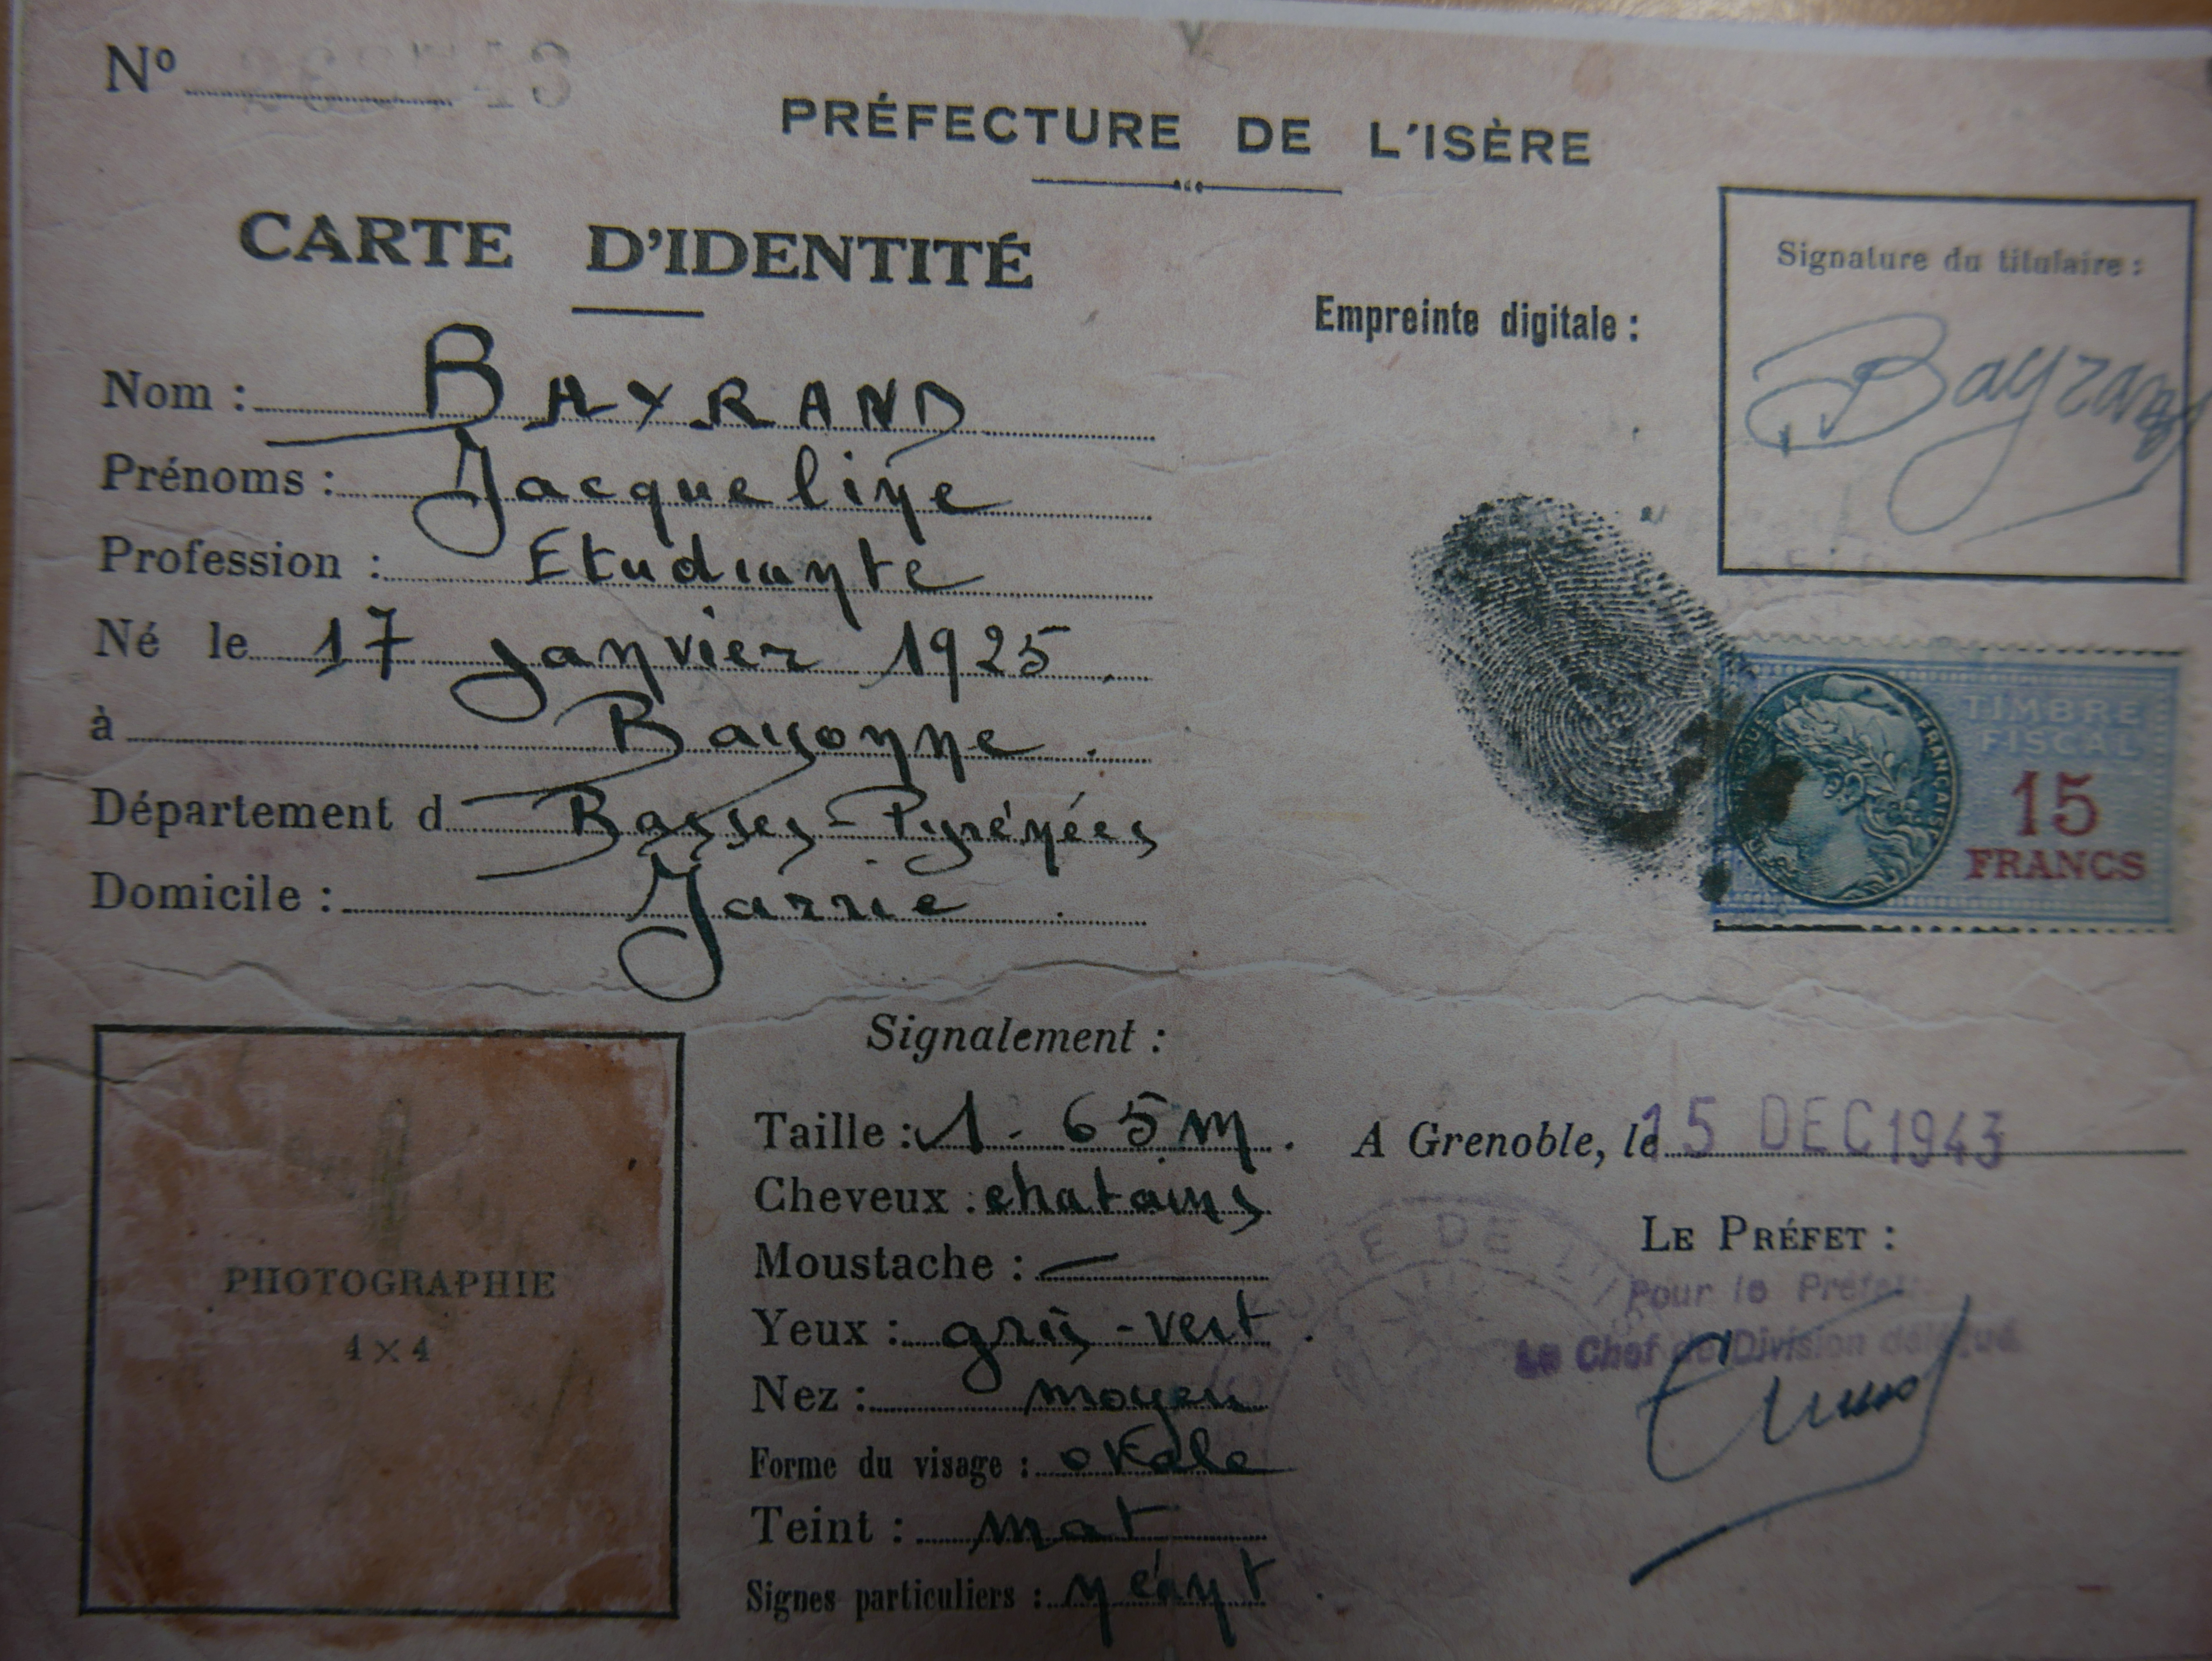 Nº
PRÉFECTURE DE L'ISÈRE
CARTE D'IDENTITÉ
Nom : BAYRAND
Prénoms : Jacqueline
Profession : Etudiante
Né le 17 janvier 1925
à Bayonne
Département d Basses-Pyrénées
Domicile : Jarrie
Empreinte digitale :
Signature du titulaire :
Bayrand
TIMBRE
FISCAL
15
FRANCS
FRANÇAISE
PHOTOGRAPHIE
4 × 4
Signalement :
Taille : 1.65 m.
Cheveux : chatains
Moustache : —
Yeux : gris-vert.
Nez : moyen
Forme du visage : ovale
Teint : mat
Signes particuliers : néant.
A Grenoble, le 15 DEC 1943
LE PRÉFET :
Pour le Préfet
Le Chef de Division délégué